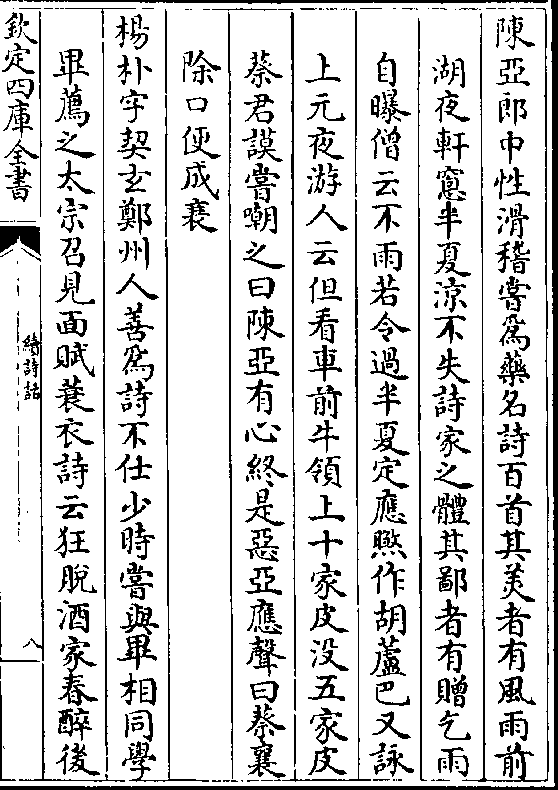 陳亞郎中性滑稽嘗爲藥名詩百首其美者有風雨前
湖夜軒窻半夏涼不失詩家之體其鄙者有贈乞雨
自曝僧云不雨若令過半夏定應㬠作胡蘆巴又詠
上元夜游人云但看車前牛領上十家皮没五家皮
蔡君謨嘗嘲之曰陳亞有心終是惡亞應聲曰蔡襄
除口便成衰
楊朴字契玄鄭州人善爲詩不仕少時嘗與畢相同學
畢薦之太宗召見面賦蓑衣詩云狂脫酒家春醉後
欽定四庫全書
續詩話
八